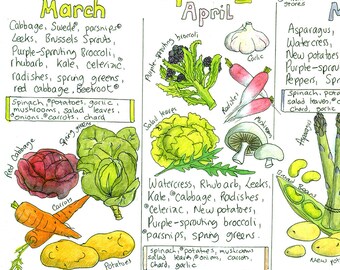 March
Cabbage, Swede, parsnips
Leeks, Brussels Sprouts,
Purple-Sprouting Broccoli,
rhubarb, Kale, celeriac,
radishes, spring greens,
red cabbage, Beetroot
spinach, potatoes, garlic,
mushrooms, salad leaves
onions, carrots, chard
Red Cabbage
Spring greens
Carrots
Potatoes
April
Purple-sprouting broccoli
Garlic
Radishes
Salad leaves
Mushrooms
Watercress, Rhubarb, Leeks,
Kale, Cabbage, Radishes,
Celeriac, New potatoes,
Purple-sprouting broccoli,
parsnips, spring greens
spinach, potatoes, mushrooms
salad leaves, onions, carrots,
chard, garlic
stores
M
Asparagus,
Watercress,
New potatoes
Purple-sprout
Peppers, Spr
spinach, pot
salad leaves,
chard
Broad Beans
New Potato